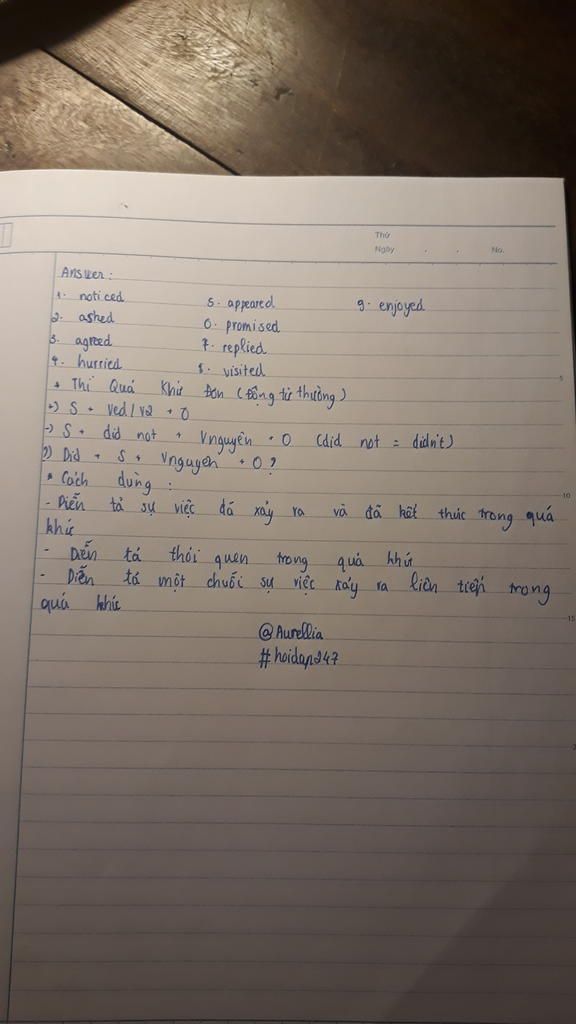 Thứ
Ngày . . No.
Answer:
1. noticed 5. appeared 9. enjoyed
2. ashed 6. promised
3. agreed 7. replied
4. hurried 8. visited
* Thì Quá Khứ Đơn (Động từ thường)
+) S + Ved/V2 + O
-) S + did not + Vnguyên + O (did not = didn't)
?) Did + S + Vnguyên + O?
* Cách dùng:
- Diễn tả sự việc đã xảy ra và đã kết thúc trong quá
khứ
- Diễn tả thói quen trong quá khứ
- Diễn tả một chuỗi sự việc xảy ra liên tiếp trong
quá khứ
@Aurellia
#hoidap247
5
10
15